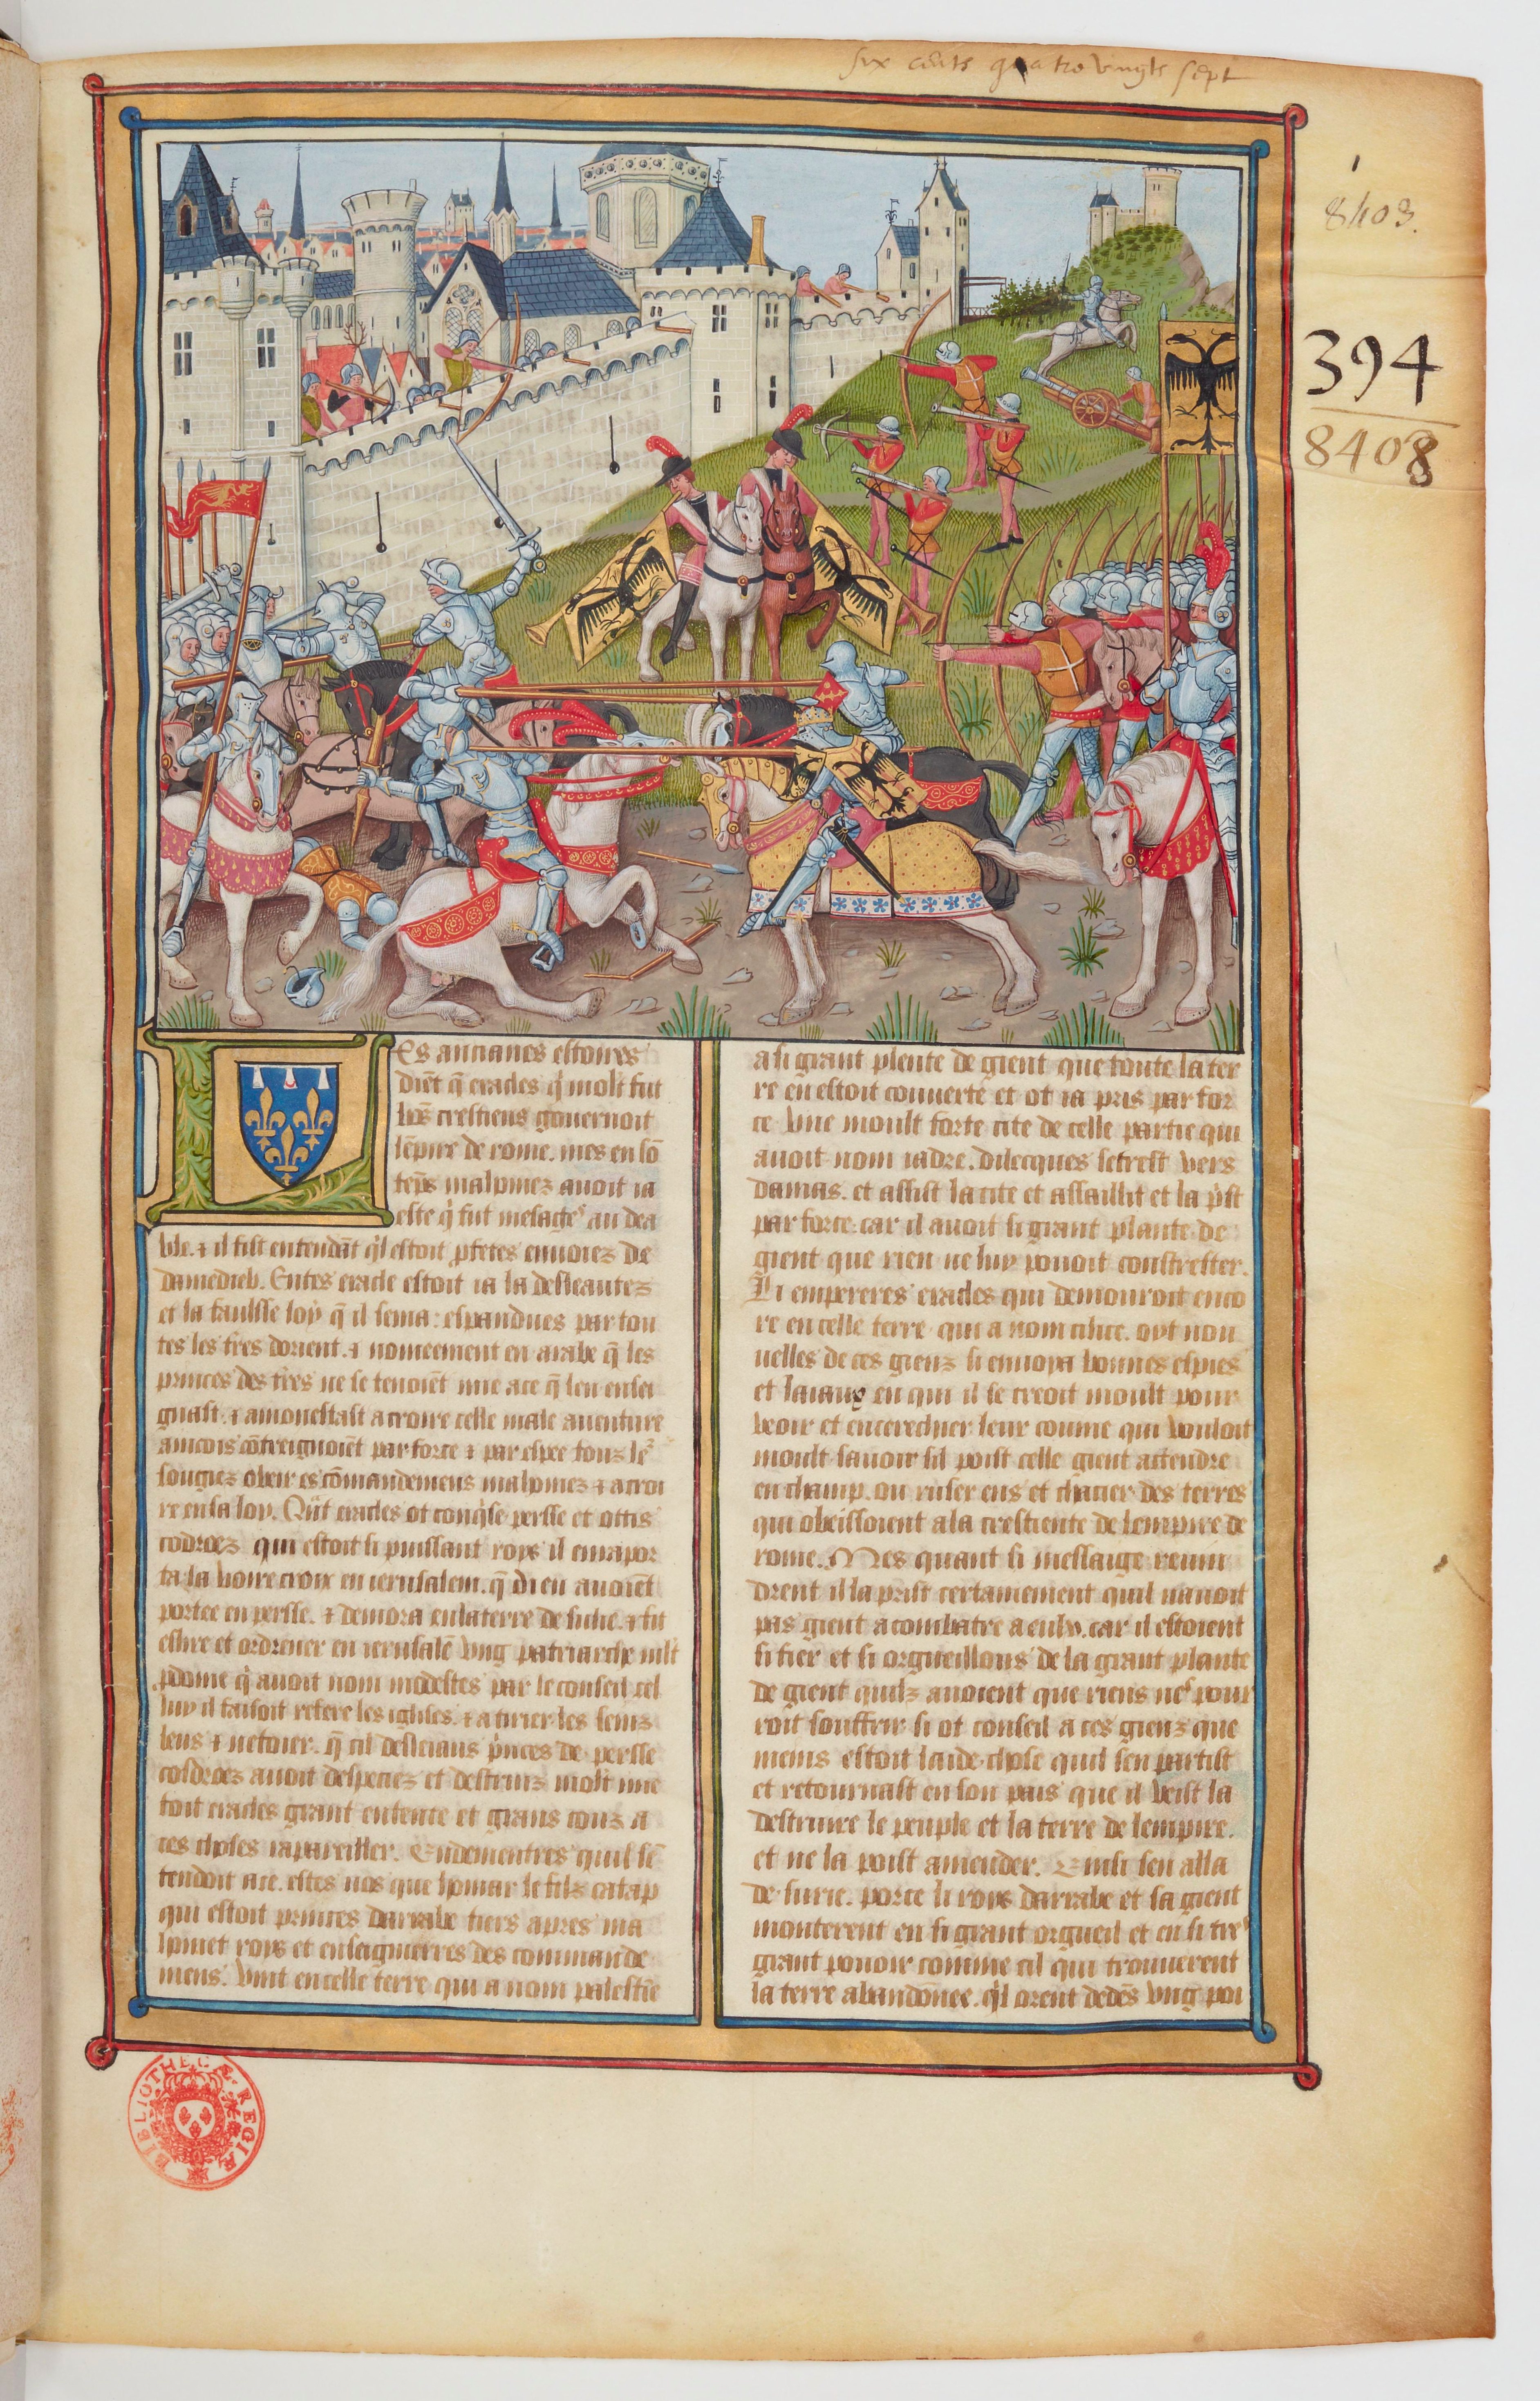 six cents quatre vingts sept
1
8403.
394
8408
Les ancianes estoires
diēt q̄ eracles q̇ molt fut
bōs crestiens gouernoit
lēpire de rome. mes en sō
tēps malpmez auoit ia
este q̇ fut mesager au dea
ble. ⁊ il fist entendāt q̇l estoit ꝓfetes enuoiez de
damedieu. Entes eracle estoit ia la desleautez
et la faulsse loy q̄ il sema: espandues par tou
tes les t̄res dorient. ⁊ nomeement en arabe q̄ les
princes des t̄res ne se tenoiēt mie ace q̄ len ensei
gnast. ⁊ amonestast a croire celle male auenture
aincois cōtreignoiēt par force ⁊ par espee touz leᷤ
sougiez obeir es cōmandemens malpmez ⁊ a croi
re en sa loy. Qn̄t eracles ot conq̇se persse et ottis
codroez qui estoit si puissant roys il en rapor
ta la voire croix en ierusalem. q̄ di en auoiēt
portee en persse. ⁊ demora en la terre de surie. ⁊ fit
eslire et ordrener en ierusalē vng patriarche mlt
ꝓdome q̇ auoit nom modestes par le conseil cel
luy il faisoit refere les iglises. ⁊ a tirier les seinz
leus ⁊ netoier. q̄ cil desleiaus p̄nces de persse
cosdroez auoit despeciez et destruiz molt mie
toit eracles grant entente et grans couz a
ces choses rapareiller. Endementres quil sē
tendoit ace. estes nos que homar le filz catap
qui estoit princes darrabe tiers apres ma
hmet roys et enseignierres des commande
mens. vint en celle terre qui a nom palestīe
a si grant plente de gient que toute la ter
re en estoit couuerte et ot ia pris par for
ce vne moult forte cite de celle partie qui
auoit nom iadre. dilecques se trest vers
damas. et assist la cite et assaillit et la p̄st
par force. car il auoit si grant plante de
gient que rien ne luy pouoit constrester.
Li empereres eracles qui demouroit enco
re en celle terre qui a nom cilice. oyt nou
uelles de ces gienz si enuoya bonnes espies
et laiaux en qui il se creoit moult pour
veoir et encerchier leur couine qui vouloit
moult sauoir sil poist celle gient actendre
en champ. ou ruser eus et chacier des terres
qui obeissoient a la crestiente de lempire de
rome. Mes quant si messaige reuin
drent il la prist certainement quil nauoit
pas gient a combatre a eulx. car il estoient
si fier et si orgueillous de la grant plante
de gient quilz auoient que riens nes pour
roit souffrir. si ot conseil a ces gienz que
meins estoit laide chose quil sen partist
et retournast en son pais que il veist la
destruire le peuple et la terre de lempire.
et ne la poist amender. Einsi sen alla
de surie. porce li roys darrabe et sa gient
monterent en si grant orgueil et en si tres
grant pouoir comme cil qui trouuerent
la terre abandōnee. q̇l orent dedēs vng poi
BIBLIOTHECAE REGIAE